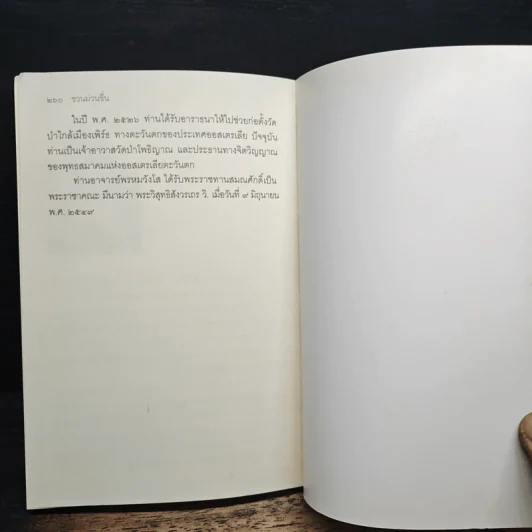 ๒๖๐ ชวนม่วนชื่น
ในปี พ.ศ. ๒๕๒๖ ท่านได้รับอาราธนาให้ไปช่วยก่อตั้งวัด
ป่าใกล้เมืองเพิร์ธ ทางตะวันตกของประเทศออสเตรเลีย ปัจจุบัน
ท่านเป็นเจ้าอาวาสวัดป่าโพธิญาณ และประธานทางจิตวิญญาณ
ของพุทธสมาคมแห่งออสเตรเลียตะวันตก
ท่านอาจารย์พรหมวังโส ได้รับพระราชทานสมณศักดิ์เป็น
พระราชาคณะ มีนามว่า พระวิสุทธิสังวรเถร วิ. เมื่อวันที่ ๙ มิถุนายน
พ.ศ. ๒๕๔๙